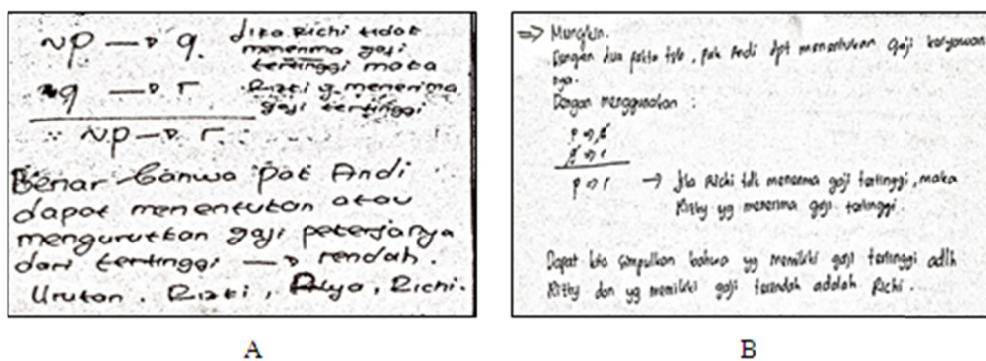 ~p → q. Jika Richi tidak
menerima gaji
tertinggi maka
~q → r Rizki yg menerima
gaji tertinggi
∴ ~p → r.
Benar bahwa pak Andi
dapat menentukan atau
mengurutkan gaji pekerjanya
dari tertinggi → rendah.
Urutan. Rizki, Alya, Richi.
A
⇒ Mungkin.
Dengan dua fakta tsb, pak Andi dpt menentukan gaji karyawan
nya.
Dengan menggunakan :
p ⇒ q
q ⇒ r
p ⇒ r → Jika Richi tdk menerima gaji tertinggi, maka
Rizky yg menerima gaji tertinggi.
Dapat kita simpulkan bahwa yg memiliki gaji tertinggi adlh
Rizky dan yg memiliki gaji terendah adalah Richi.
B